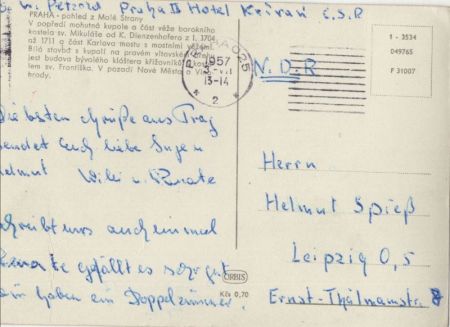 Petzold Praha II Hotel Č.S.R
PRAHA - pohled z Malé Strany
V popředí mohutná kupole a část věže barokního
kostela sv. Mikuláše od K. Dienzenhofera z l. 1704
až 1711 a část Karlova mostu s mosteckými věžemi
Bílá stavba s kupolí na pravém vltavském břehu
jest budova bývalého kláštera křižovníků s
lem sv. Františka. V pozadí Nové Město a Vi-
hrady.
PRAHA 025
1957
13-14
2
1 - 3534
049765
F 31007
N.D.R
Die besten Grüße aus Prag
sendet Euch liebe Inge u
Helmut Willi u. Renate
Schreibt uns auch einmal
Renate gefällt es sehr gut
wir haben ein Doppelzimmer.
Herrn
Helmut Spieß
Leipzig 0,5
Ernst-Thälmannstr. 8
ORBIS
Kčs 0,70